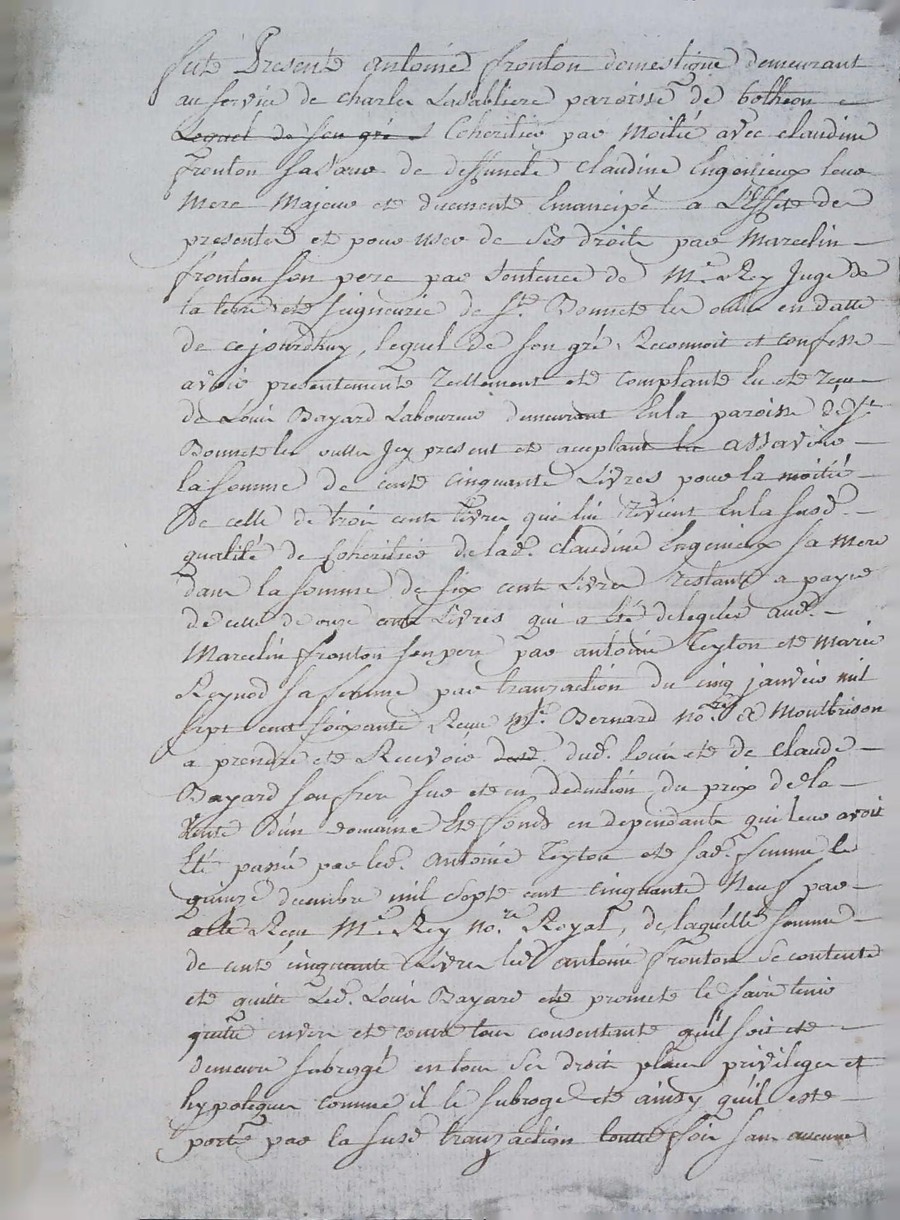 fut Present antoine fronton domestique demeurant
au service de charles Lasabliere paroisse de botheon
Lequel de son gré Coheritier par Moitié avec claudine
fronton sa sœur de deffuncte Claudine Engenieux leur
Mere Majeur et duement Emancipé a L'Effet des
presentes et pour user de ses droits par Marcelin
fronton son pere par sentence de Mr. Rey Juge de
la terre et seigneurie de St. Bonnet les oulles en datte
de cejourdhuy, lequel de son gré Reconnoit et confesse
avoir presentement reellement et comptant eu et reçu
de Louis Bayard Laboureur demeurant En la paroisse de St
Bonnet les oulles Icy present et acceptant assavoir
la somme de cent cinquante Livres pour la moitié
de celle de trois cents livres qui lui revient En la susd.
qualité de Coheritier de lad. Claudine Engenieux sa Mere
dans la somme de six cent Livres restante a payer
de celle de onze cents Livres qui a été deleguée aud.
Marcelin fronton son pere par antoine Teyton et Marie
Reynod sa femme par transaction du cinq janvier mil
sept cent soixante Reçu Me. Bernard nore. a Montbrison
a prendre et Recevoir dud. Louis et de Claude
Bayard son frere sur et en deduction du prix de la
Vente d'un domaine Et fonds en dependants qui leur avoit
Eté passée par led. Antoine Teyton et sad. femme le
quinze decembre mil sept cent cinquante Neuf par
acte Reçu Me. Rey nore. Royal, de laquelle somme
de cent cinquante Livres led. antoine fronton se contente
et quitte Led. Louis Bayard et promet le faire tenir
quitte envers et contre tous consentant qu'il soit et
demeure subrogé en tous ses droits places privileges et
hypoteques comme il le subroge et ainsy qu'il est
porté par la susd. transaction toutte fois sans aucune